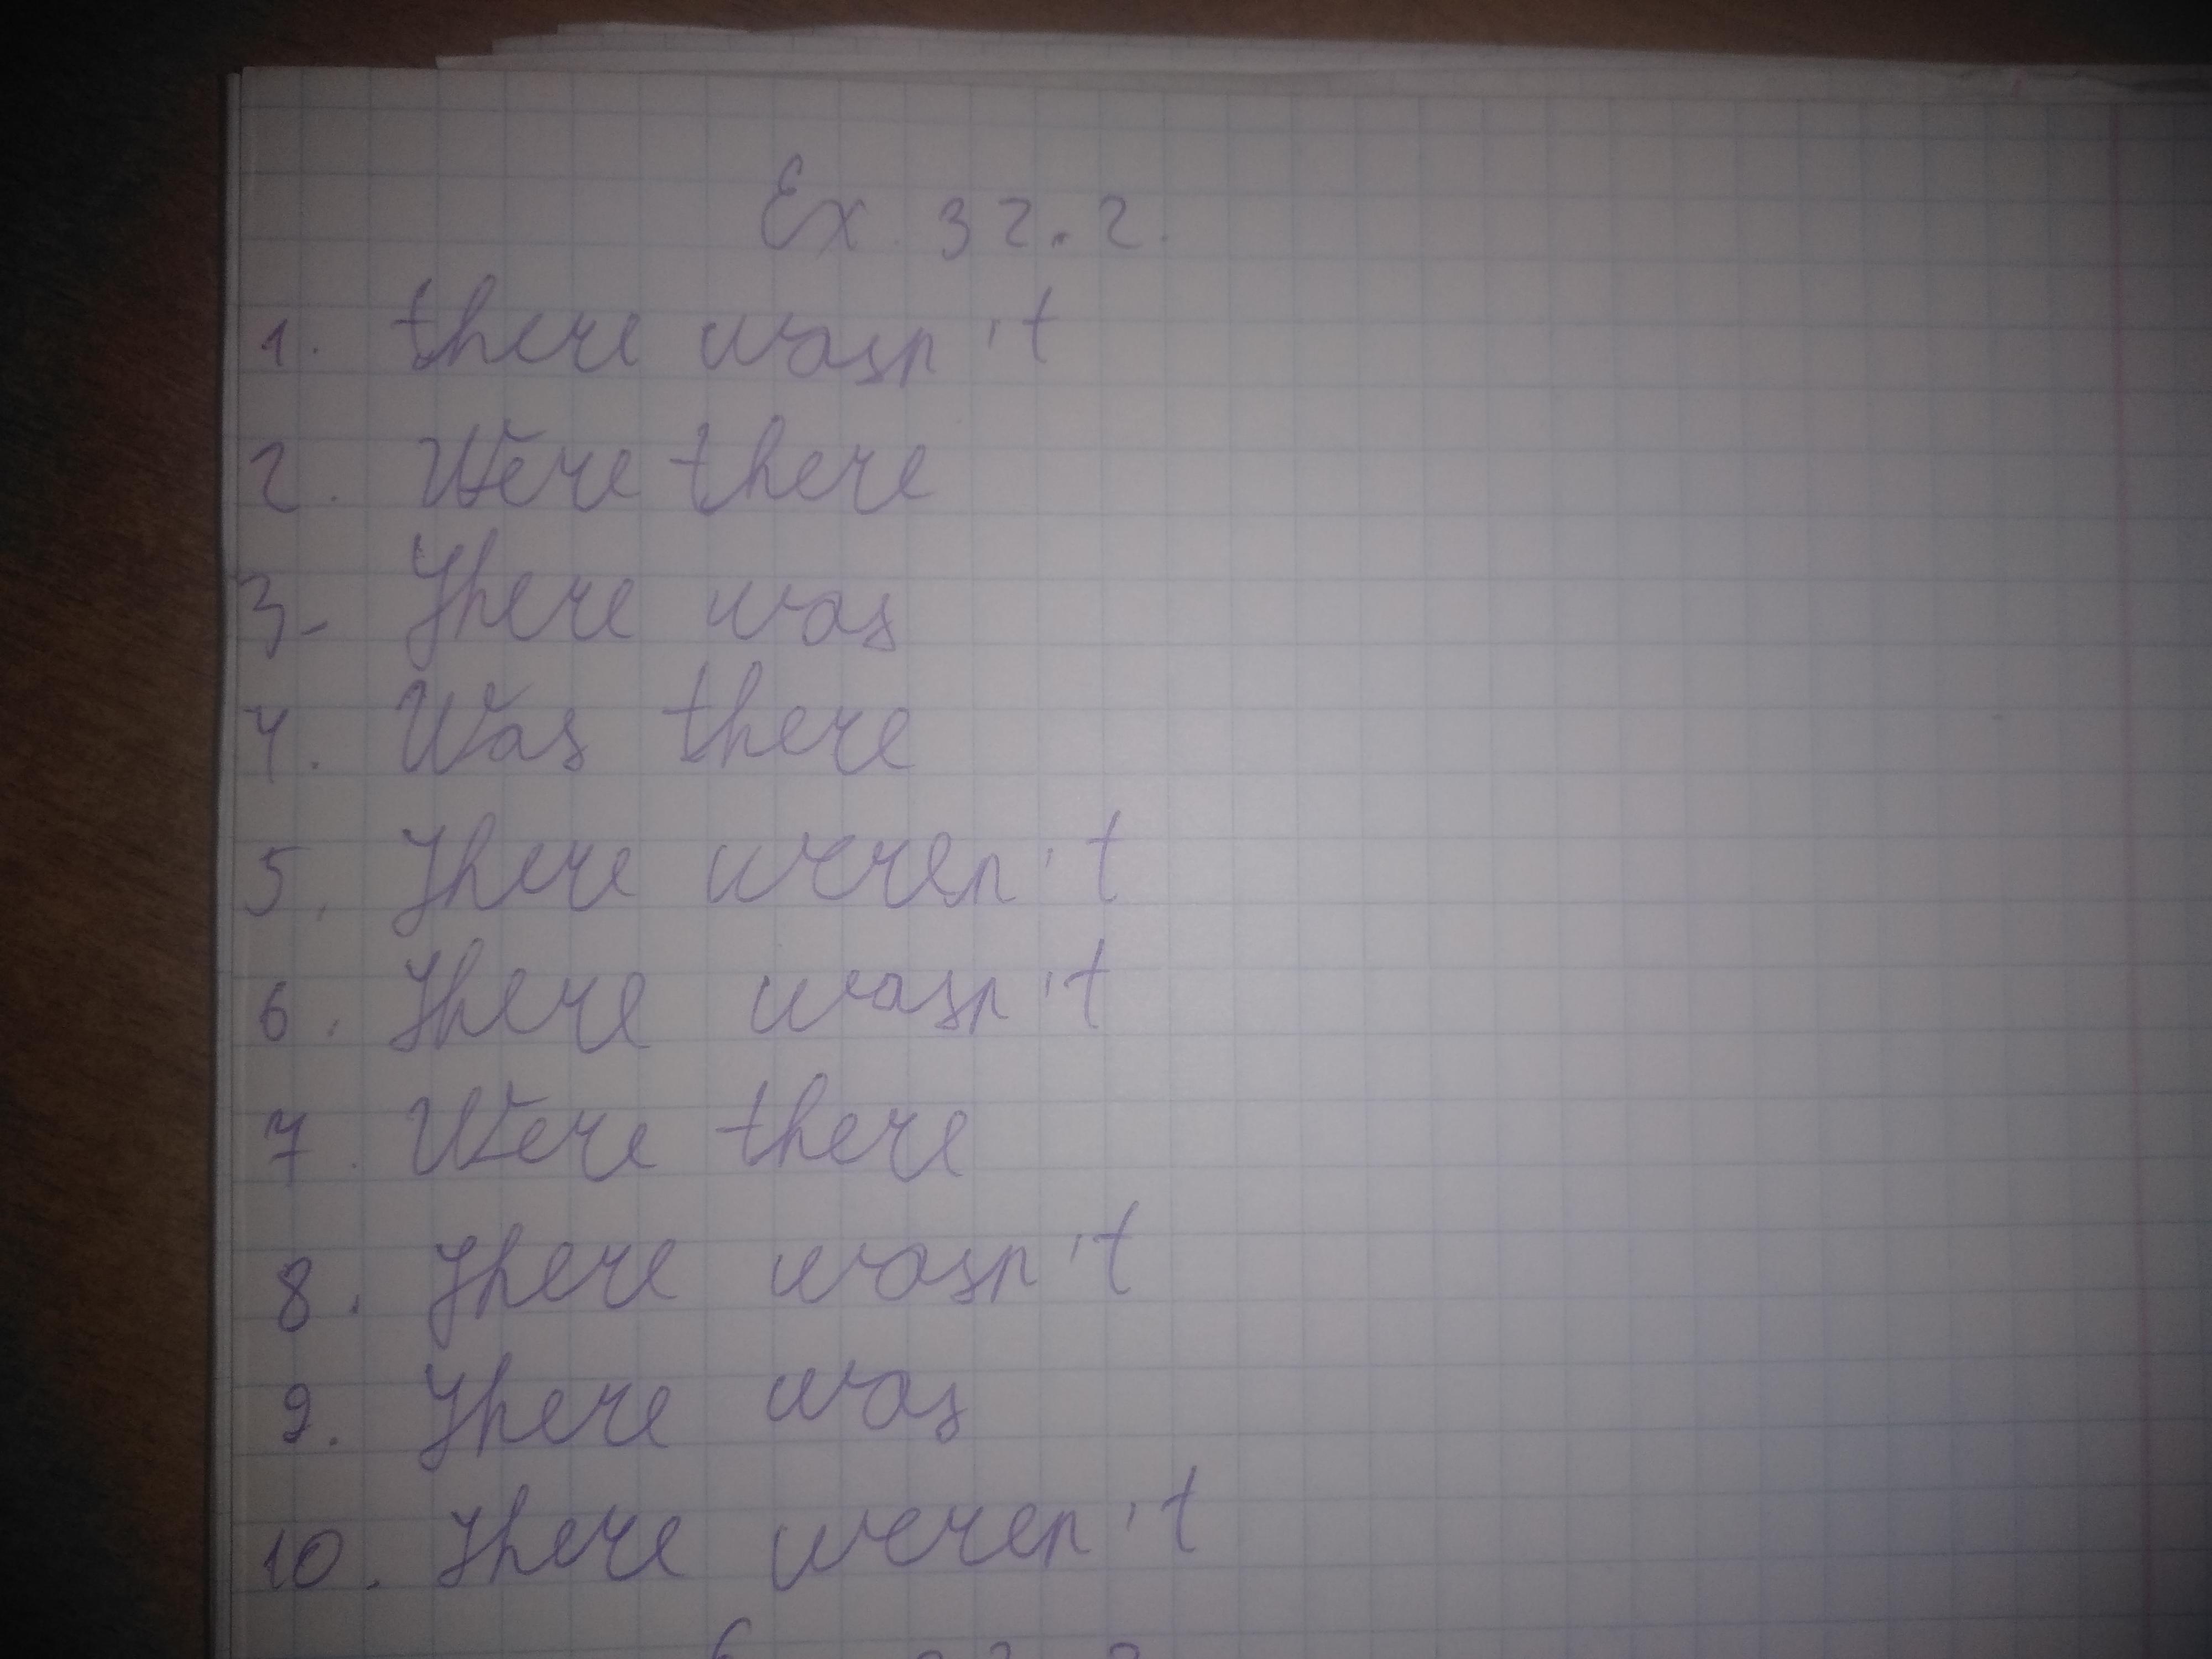 Ex. 32.2.
1. there wasn't
2. Were there
3- There was
4. Was there
5. There weren't
6. There wasn't
7. Were there
8. There wasn't
9. There was
10. There weren't